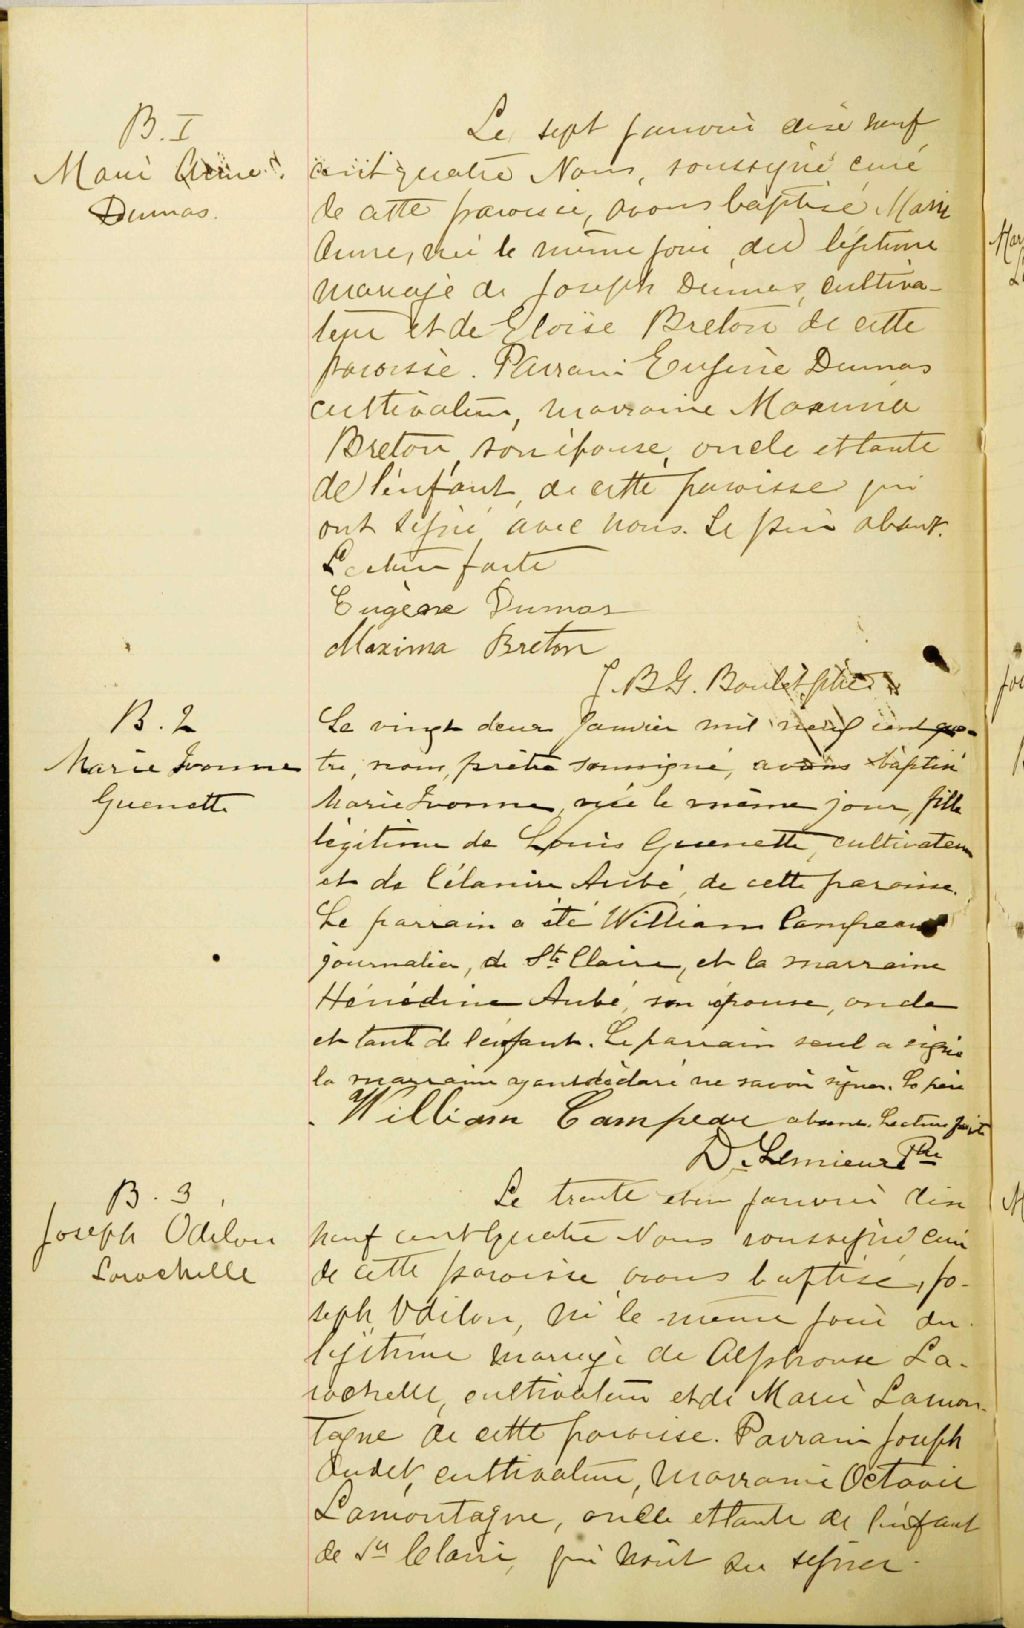 B. I
Marie Anne
Dumas.
Le sept janvier dixe neuf
cent quatre Nous, soussigné curé
de cette paroisse, avons baptisé Marie
Anne, née le même jour, du légitime
mariage de Joseph Dumas, cultiva-
teur et de Eloïse Breton de cette
paroisse. Parrain Eugène Dumas
cultivateur, marraine Maxima
Breton, son épouse, oncle et tante
de l'enfant, de cette paroisse qui
ont signé avec nous. Le père absent.
Lecture faite
Eugène Dumas
Maxima Breton
J. B. G. Boulet, ptre
B. 2
Marie Ivonne
Guenette
Le vingt deux Janvier mil neuf cent qua-
tre, nous, prêtre soussigné, avons baptisé
Marie Ivonne, née le même jour, fille
légitime de Louis Guenette, cultivateur
et de Célanire Aubé, de cette paroisse.
Le parrain a été William Campeau
journalier, de Ste Claire, et la marraine
Hénédine Aubé, son épouse, oncle
et tante de l'enfant. Le parrain seul a signé
la marraine ayant déclaré ne savoir signer. Le père
William Campeau absent. Lecture faite
D. Lemieux Ptre
B. 3
Joseph Odilon
Larochelle
Le trente et un janvier dix
neuf cent quatre Nous soussigné curé
de cette paroisse avons baptisé, Jo-
seph Odilon, né le même jour du
légitime mariage de Alphonse La-
rochelle, cultivateur et de Marie Lamon-
tagne de cette paroisse. Parrain Joseph
Audet, cultivateur, marraine Octavie
Lamontagne, oncle et tante de l'enfant
de Ste Claire, qui n'ont su signer.